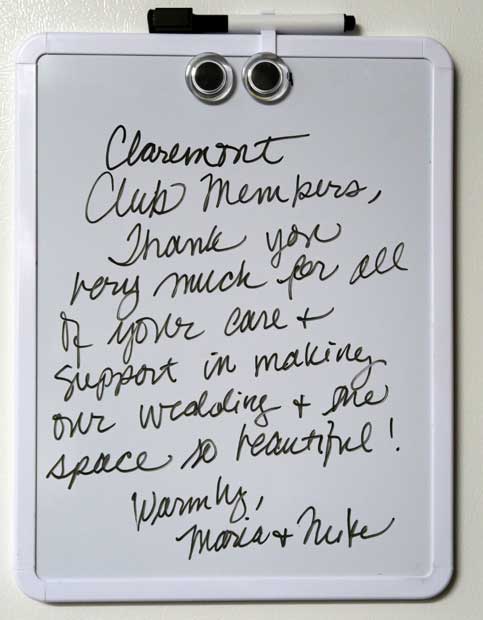 Claremont
Club Members,
Thank you
very much for all
of your care +
support in making
our wedding + the
space so beautiful!
Warmly,
Maria + Mike